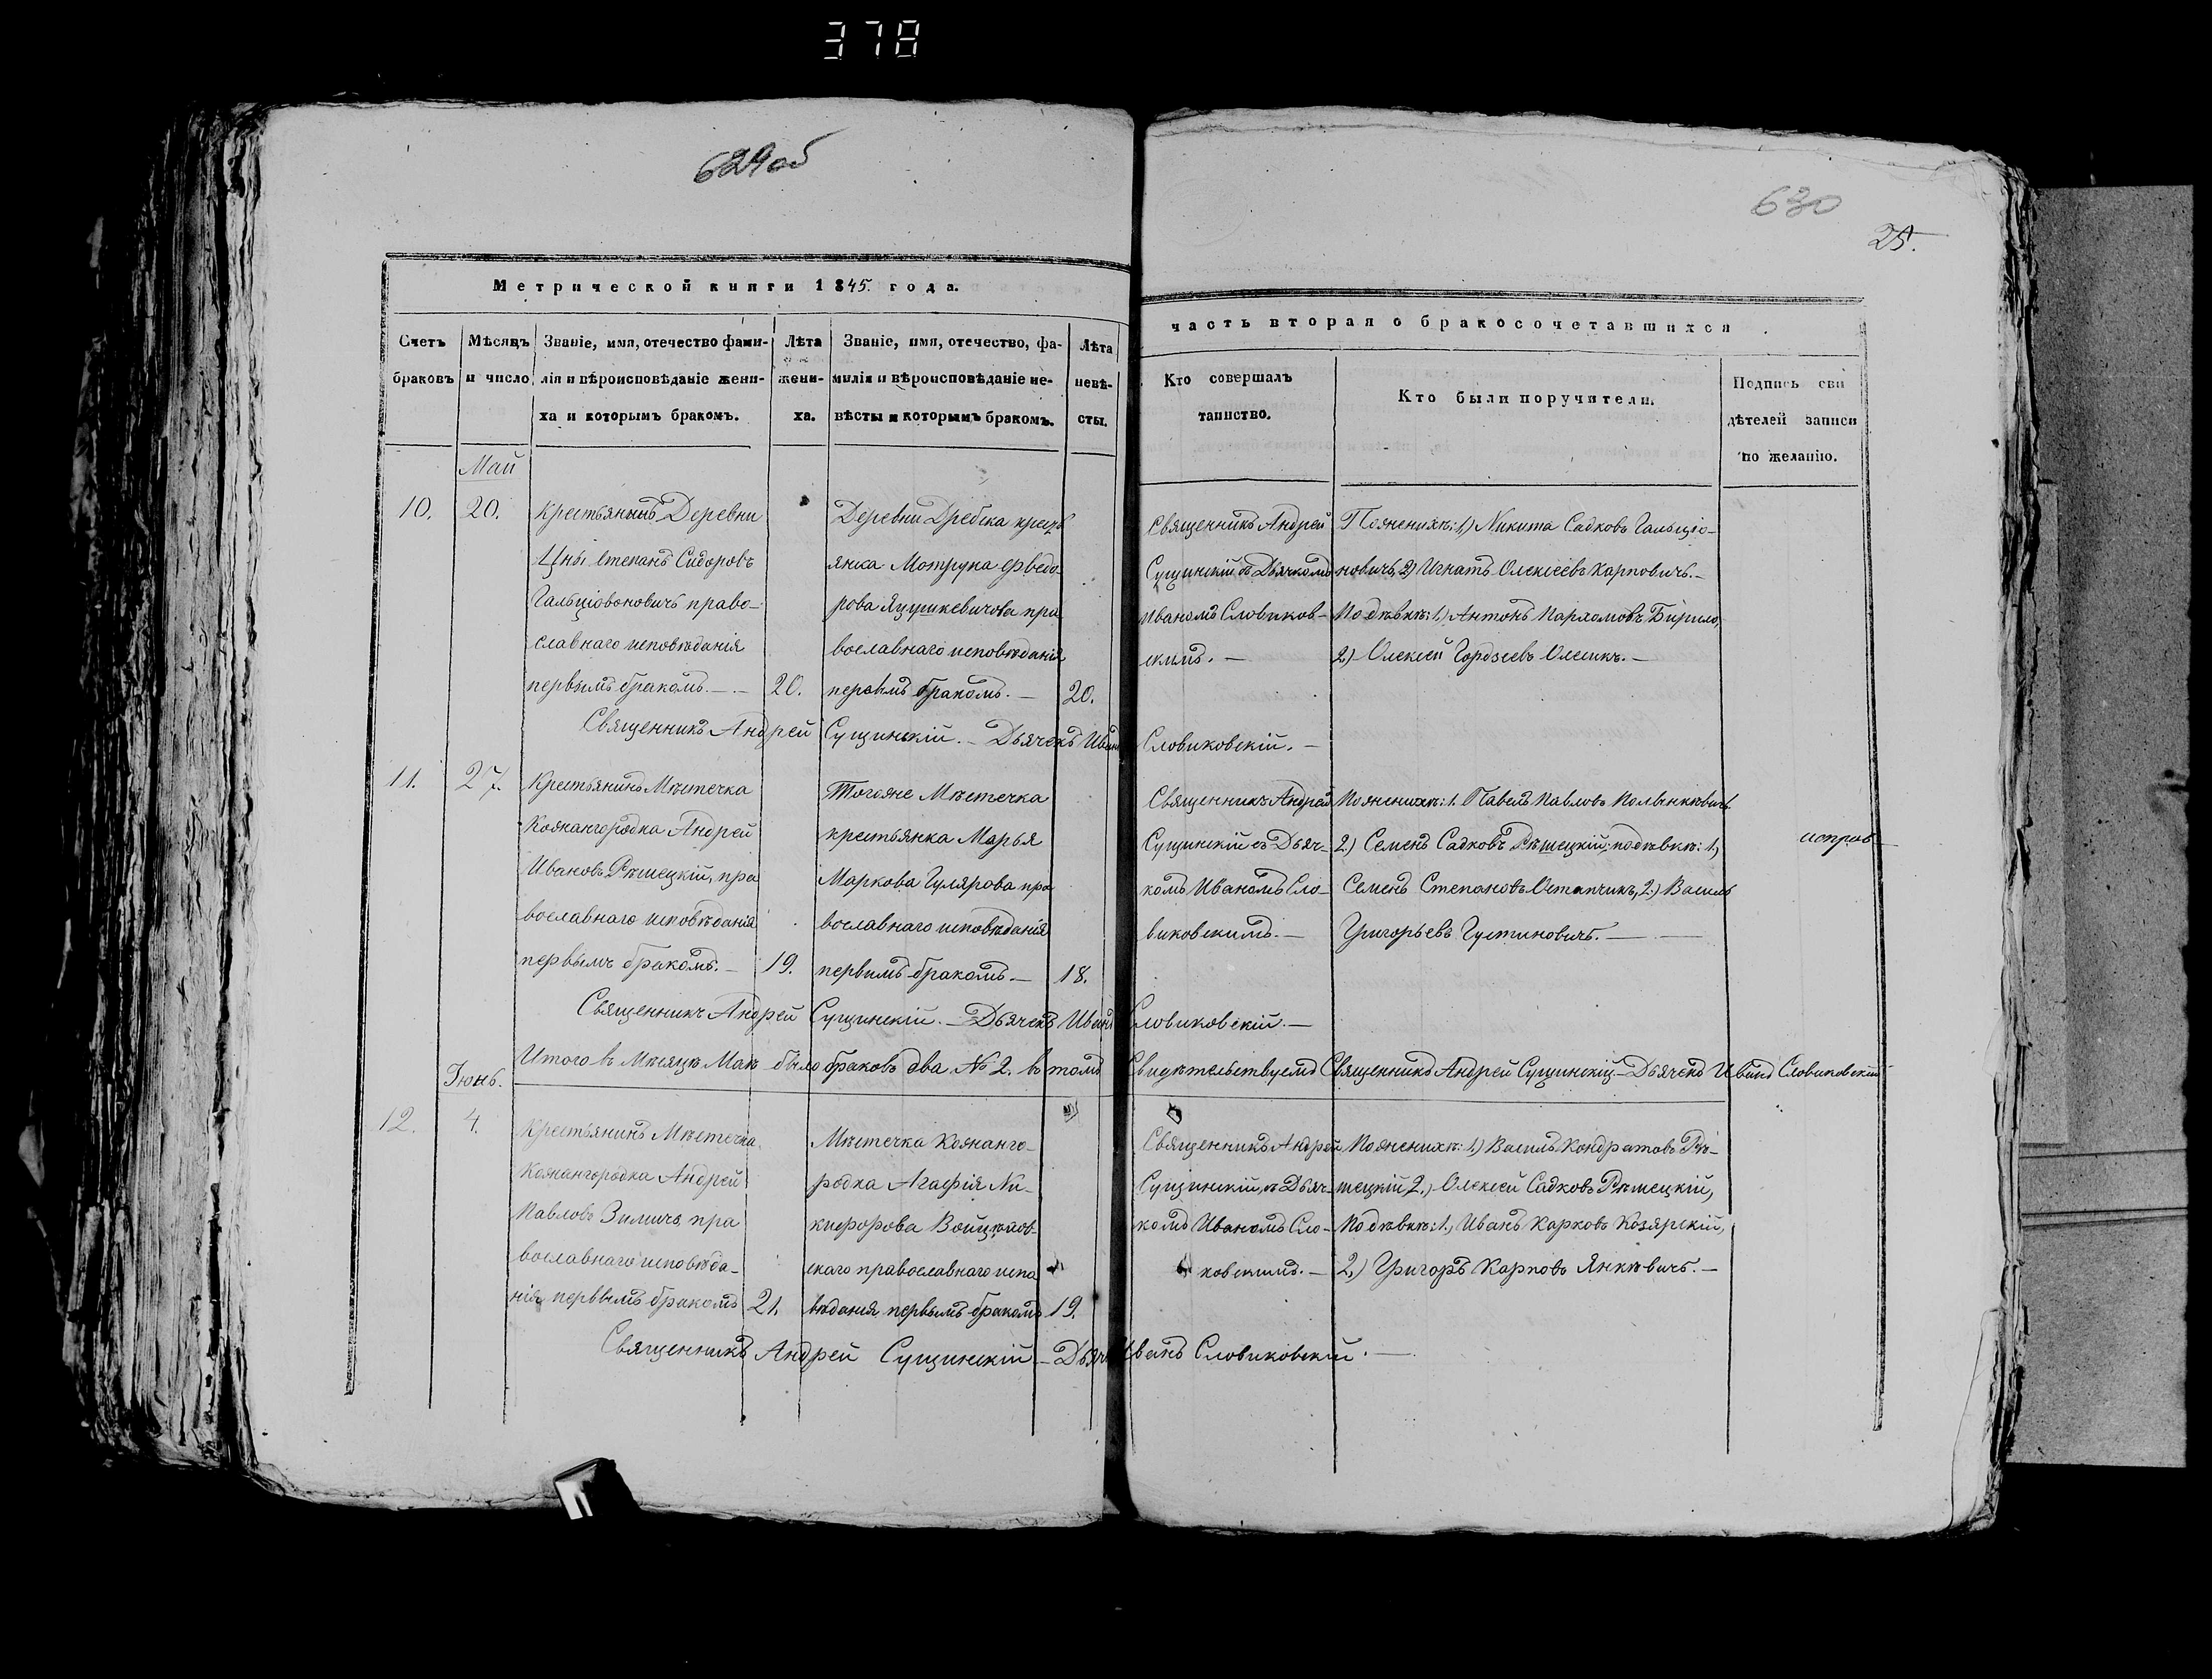 378
629об
630
25.
Метрической книги 1845. года.
часть вторая о бракосочетавшихся
Счетъ браковъ
Мѣсяцъ и число
Званіе, имя, отечество фами-
лія и вѣроисповѣданіе жени-
ха и которымъ бракомъ.
Лѣта
жени-
ха.
Званіе, имя, отечество, фа-
милія и вѣроисповѣданіе не-
вѣсты и которымъ бракомъ.
Лѣта
невѣ-
сты.
Кто совершалъ
таинство.
Кто были поручители.
Подпись сви
дѣтелей записи
по желанію.
Май
10.
20.
Крестьянинъ Деревни
Цны Степанъ Сидоровъ
Гальціовоновичъ право-
славнаго исповѣданія
первымъ бракомъ. —
20.
Деревни Дребска крест
янка Мотруна Ѳведо
рова Яцушкевичова пра
вославнаго исповѣданія
первымъ бракомъ. —
20.
Священникъ Андрей
Сущинскій съ Дьячкомъ
Иваномъ Словиков-
скимъ. —
Поженихѣ: 1.) Никита Садковъ Гальціо-
новичъ, 2) Игнатъ Олексѣевъ Карповичъ. —
Подѣвкѣ: 1.) Антонъ Пархомовъ Бирило,
2.) Олексѣй Гордѣевъ Олешикъ. —
Священникъ Андрей Сущинскій. — Дьячекъ Иванъ Словиковскій. —
11.
27.
Крестьянинъ Мѣстечка
Кожангородка Андрей
Ивановъ Рѣшецкій, пра
вославнаго исповѣданія
первымъ бракомъ. —
19.
Тогоже Мѣстечка
крестьянка Марья
Маркова Гулярова пра
вославнаго исповѣданія
первымъ бракомъ —
18.
Священникъ Андрей
Сущинскій съ Дьяч-
комъ Иваномъ Сло-
виковскимъ. —
Поженихѣ: 1. Павелъ Павловъ Полынкѣвичъ
2.) Семенъ Садковъ Рѣшецкій; подѣвкѣ: 1.,
Семенъ Степановъ Остапчикъ, 2.) Василь
Григорьевъ Густиновичъ. —
исправ
Священникъ Андрей Сущинскій. — Дьячекъ Иванъ Словиковскій. —
Итого въ Мѣсяцѣ Маѣ было браковъ два № 2. въ томъ Свидѣтельствуемъ Священникъ Андрей Сущинскій — Дьячекъ Иванъ Словиковскій
Іюнь.
12.
4.
Крестьянинъ Мѣстечка
Кожангородка Андрей
Павловъ Зиличъ пра
вославнаго исповѣда-
нія первымъ бракомъ
21.
Мѣстечка Кожанго-
родка Агафія Ни-
кифорова Войцѣхов-
скаго православнаго испо
вѣданія первымъ бракомъ
19.
Священникъ Андрей
Сущинскій, съ Дьяч-
комъ Иваномъ Сло-
ковскимъ. —
Поженихѣ: 1.) Василь Кондратовъ Рѣ-
шецкій, 2.) Олексѣй Садковъ Рѣшецкій,
Подѣвкѣ: 1., Иванъ Карковъ Козярскій,
2.) Григоръ Карповъ Янкѣвичъ. —
Священникъ Андрей Сущинскій — Дьячекъ Иванъ Словиковскій. —